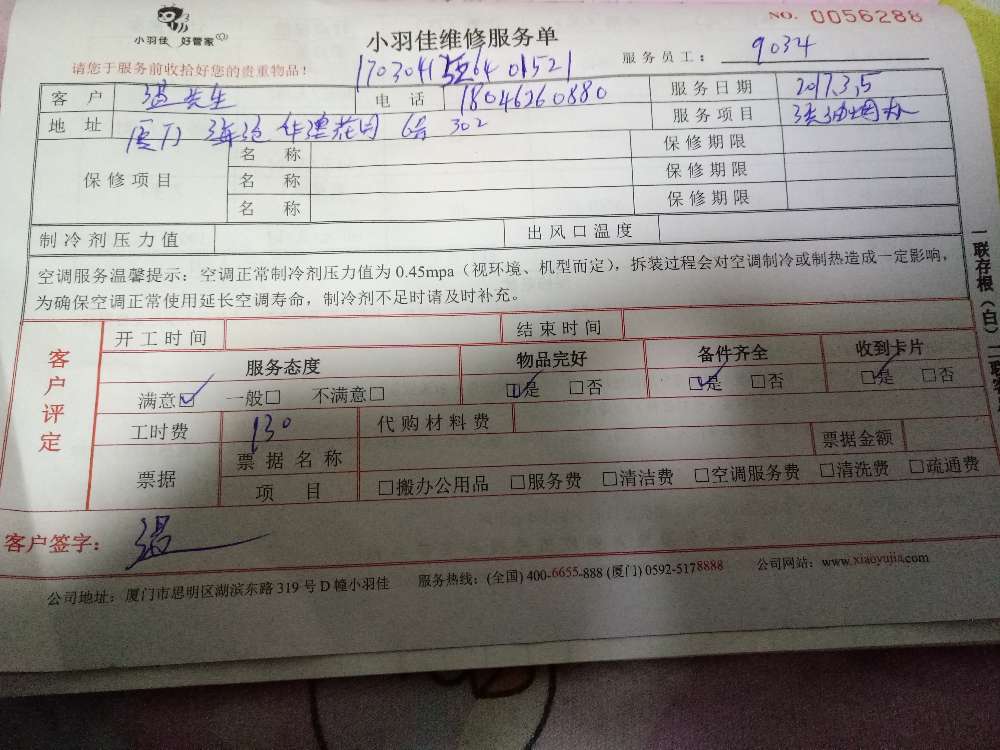 小羽佳 好管家
NO. 0056288
小羽佳维修服务单
服务员工： 9034
请您于服务前收拾好您的贵重物品！
客 户 温先生 电 话 18046260880 服务日期 2017.3.5
地 址 厦门 海沧 花园 6号 302 服务项目 洗油烟机
保修项目 名 称 保修期限
名 称 保修期限
名 称 保修期限
制冷剂压力值 出风口温度
空调服务温馨提示：空调正常制冷剂压力值为 0.45mpa（视环境、机型而定），拆装过程会对空调制冷或制热造成一定影响，
为确保空调正常使用延长空调寿命，制冷剂不足时请及时补充。
客户评定
开工时间 结束时间
服务态度 物品完好 备件齐全 收到卡片
满意☑ 一般□ 不满意□ ☑是 □否 ☑是 □否 ☑是 □否
工时费 130 代购材料费
票据 票据名称 票据金额
项 目 □搬办公用品 □服务费 □清洁费 □空调服务费 □清洗费 □疏通费
客户签字： 温
公司地址：厦门市思明区湖滨东路 319 号 D 幢小羽佳 服务热线：(全国) 400-6655-888 (厦门) 0592-5178888 公司网站：www.xiaoyujia.com
一联存根（白）